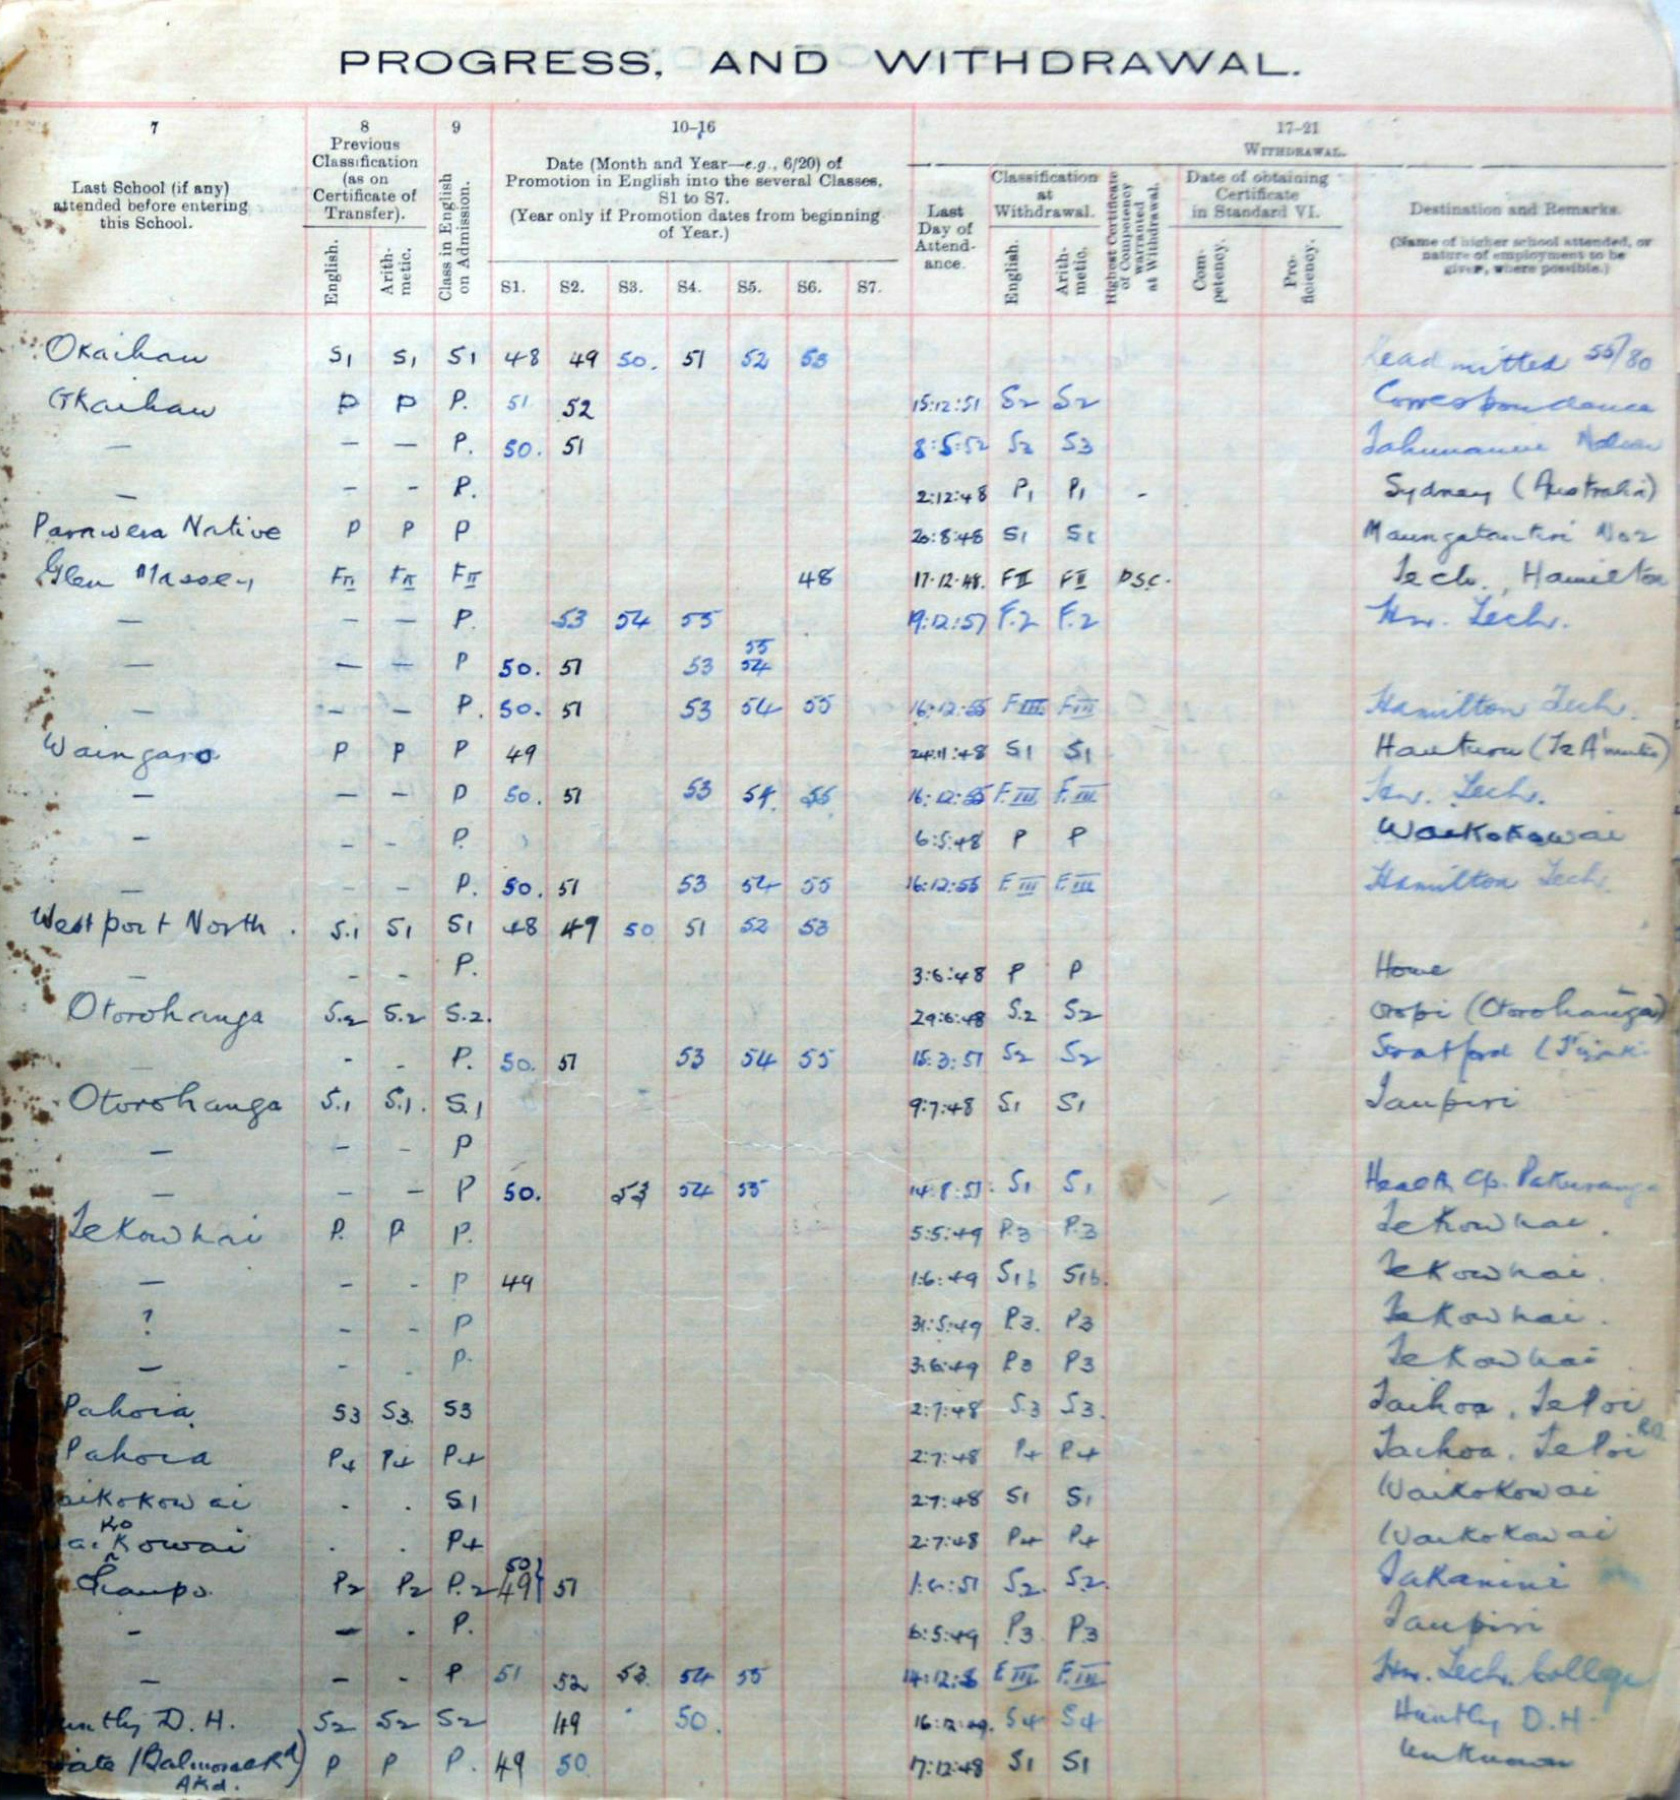 PROGRESS, AND WITHDRAWAL.
7
Last School (if any)
attended before entering
this School.
8
Previous
Classification
(as on
Certificate of
Transfer).
English.
Arith-
metic.
9
Class in English
on Admission.
10-16
Date (Month and Year—e.g., 6/20) of
Promotion in English into the several Classes,
S1 to S7.
(Year only if Promotion dates from beginning
of Year.)
S1. S2. S3. S4. S5. S6. S7.
17-21
WITHDRAWAL.
Last
Day of
Attend-
ance.
Classification
at
Withdrawal.
English.
Arith-
metic.
Highest Certificate
of Competency
warranted
at Withdrawal.
Date of obtaining
Certificate
in Standard VI.
Com-
petency.
Pro-
ficiency.
Destination and Remarks.
(Name of higher school attended, or
nature of employment to be
given, where possible.)
Okaihau S1 S1 S1 48 49 50. 51 52 53 Readmitted 55/80
Okaihau P P P. 51 52 15:12:51 S2 S2 Correspondence
— — — P. 50. 51 8:5:52 S2 S3
— - - P. 2:12:48 P1 P1 - Sydney (Australia)
Parawera Native P P P 20:8:48 S1 S1 No 2
Glen Massey FII FII FII 48 17-12-48. FII FII P.S.C. Tech., Hamilton
— — — P. 53 54 55 19:12:57 F.2 F.2 Hn. Tech.
55
— — — P 50. 51 53 54
— — — P. 50. 51 53 54 55 16:12:55 FIII FIII Hamilton Tech.
Waingaro P P P 49 24:11:48 S1 S1 Hauturu (Te A'mutu)
— — — P 50. 51 53 54. 55 16:12:55 F.III F.III Hn. Tech.
— - - P. 6:5:48 P P Waikokowai
— - - P. 50. 51 53 54 55 16:12:55 F.III F.III Hamilton Tech.
Westport North. S.1 S1 S1 48 49 50 51 52 53
— - - P. 3:6:48 P P Home
Otorohanga S.2 S.2 S.2. 29:6:48 S.2 S2 Oropi (Otorohanga)
— - - P. 50. 51 53 54 55 15:3:51 S2 S2 Stratford
Otorohanga S.1 S.1. S.1 9:7:48 S1 S1 Taupiri
— - - P
— - - P 50. 53 54 55 14:8:51. S1 S1 Health Cp. Pakuranga
Te Kowhai P. P P. 5:5:49 P.3 P.3 Te Kowhai.
— - - P 49 1:6:49 S1b S1b. Te Kowhai.
? - - P 31:5:49 P3. P3 Te Kowhai.
— - - P. 3:6:49 P3 P3 Te Kowhai
Pahoia S3 S3. S3 2:7:48 S.3 S3. Taihoa, Te Poi
Rd.
Pahoia P4 P4 P4 2:7:48 P4 P4 Taihoa, Te Poi
aikokowai . . S1 2:7:48 S1 S1 Waikokowai
ko
aikowai . . P4 2:7:48 P4 P4 Waikokowai
50
Ohaupo P2 P2 P.2 49 51 1:6:51 S2. S2. Takanini
- - . P. 6:5:49 P3 P3 Taupiri
— - - P 51 52 53. 54 55 F.III F.III Hn. Tech. College
untly D.H. S2 S2 S2 49 50. 16:12:49. S4 S4 Huntly D.H.
(Balmoral Rd) P P P. 49 50 17:12:48 S1 S1 Unknown
Akd.